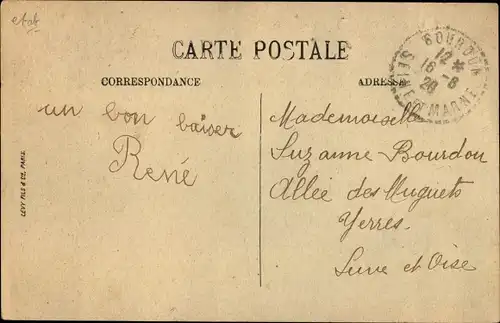 etat
CARTE POSTALE
CORRESPONDANCE
ADRESSE
BOURDON
12 *
16 -8
26
SEINE ET MARNE
un bon baiser
René
Mademoiselle
Suzanne Bourdon
Allée des Muguets
Yerres.
Seine et Oise
LÉVY FILS & CIE, PARIS.